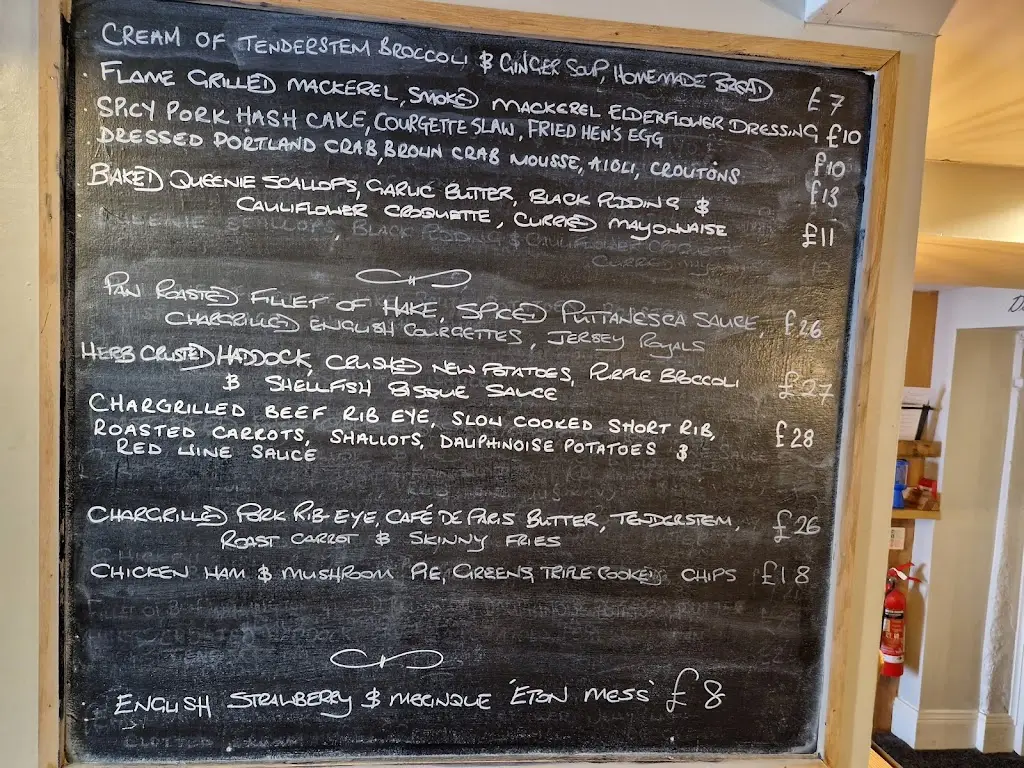 CREAM OF TENDERSTEM BROCCOLI & GINGER SOUP, HOMEMADE BREAD £7
FLAME GRILLED MACKEREL, SMOKED MACKEREL ELDERFLOWER DRESSING £10
SPICY PORK HASH CAKE, COURGETTE SLAW, FRIED HEN'S EGG £10
DRESSED PORTLAND CRAB, BROWN CRAB MOUSSE, AIOLI, CROUTONS £13
BAKED QUEENIE SCALLOPS, GARLIC BUTTER, BLACK PUDDING &
CAULIFLOWER CROQUETTE, CURRIED MAYONNAISE £11
PAN ROASTED FILLET OF HAKE, SPICED PUTTANESCA SAUCE, £26
CHARGRILLED ENGLISH COURGETTES, JERSEY ROYALS
HERB CRUSTED HADDOCK, CRUSHED NEW POTATOES, PURPLE BROCCOLI £27
& SHELLFISH BISQUE SAUCE
CHARGRILLED BEEF RIB EYE, SLOW COOKED SHORT RIB, £28
ROASTED CARROTS, SHALLOTS, DAUPHINOISE POTATOES &
RED WINE SAUCE
CHARGRILLED PORK RIB-EYE, CAFÉ DE PARIS BUTTER, TENDERSTEM, £26
ROAST CARROT & SKINNY FRIES
CHICKEN HAM & MUSHROOM PIE, GREENS, TRIPLE COOKED CHIPS £18
ENGLISH STRAWBERRY & MERINGUE 'ETON MESS' £8